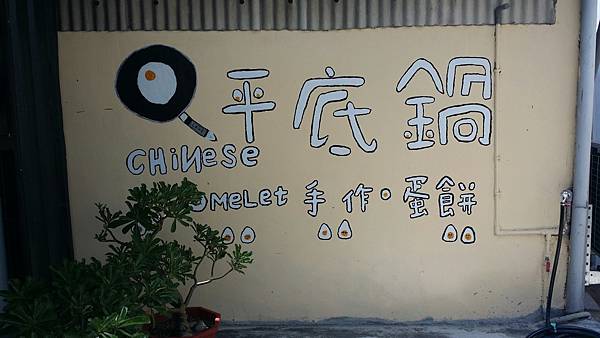 平底鍋
CHiNese
omeLet 手作·蛋餅